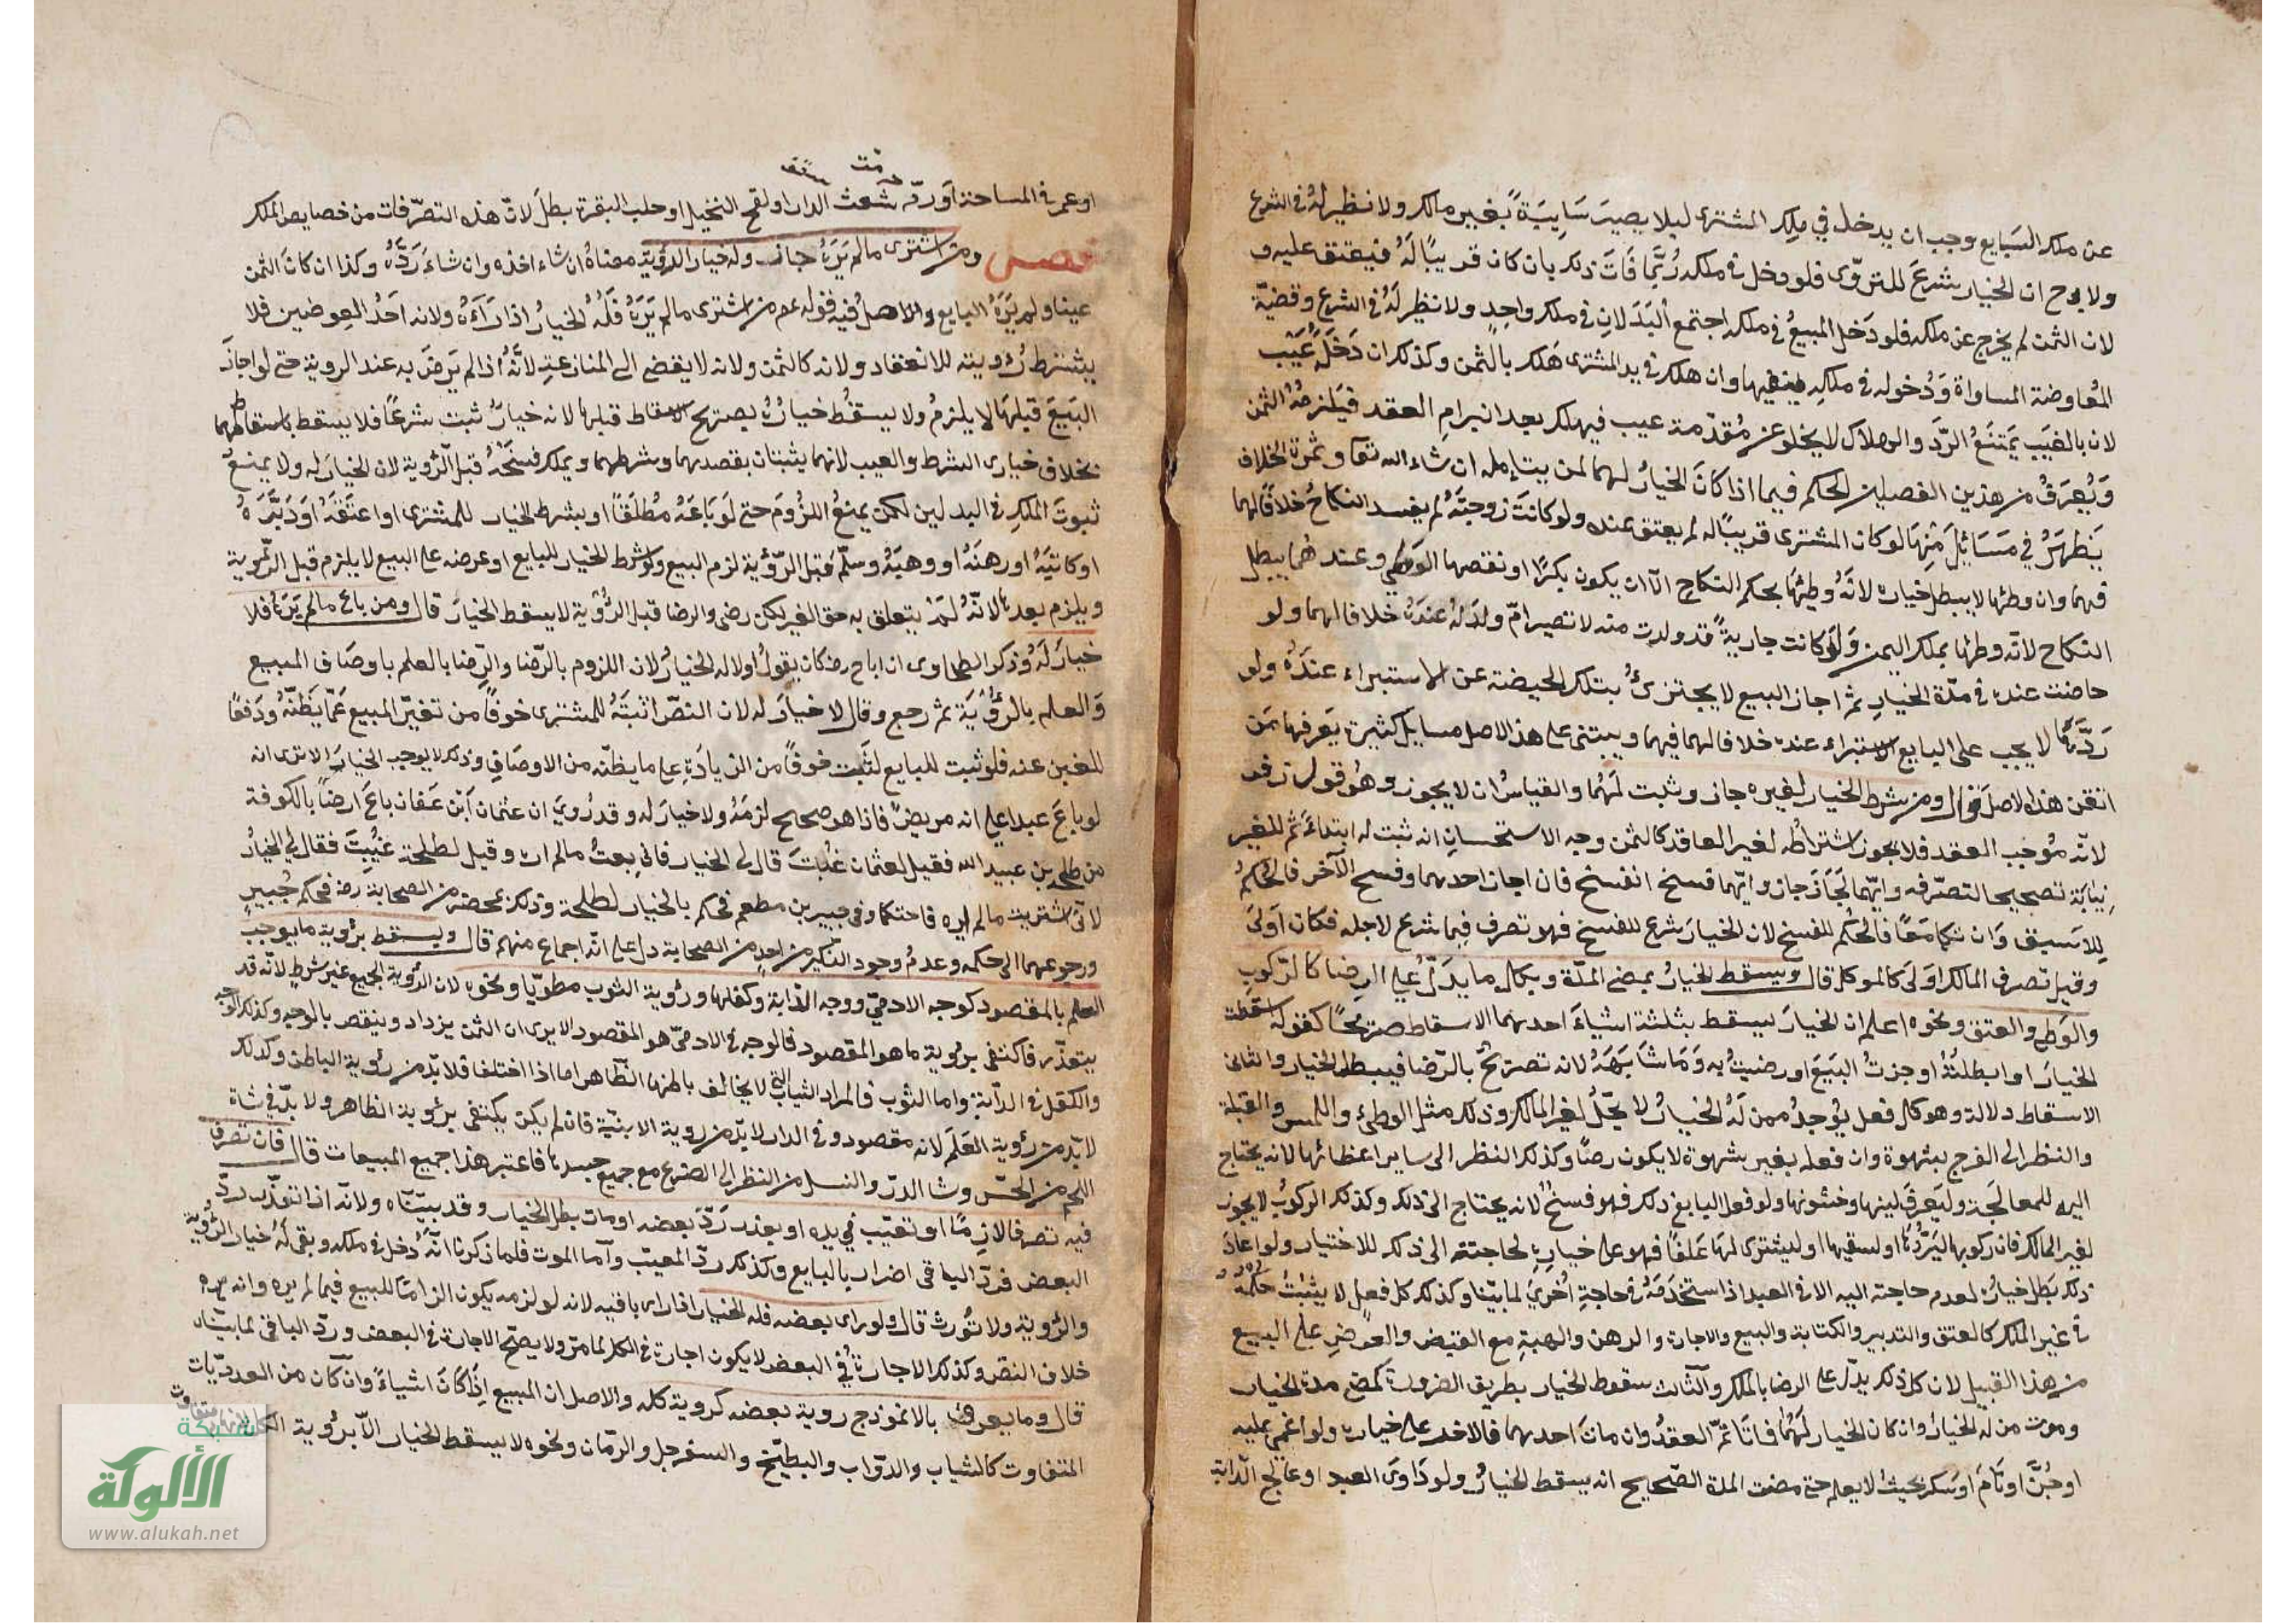 عن ملك البايع وجب ان يدخل في ملك المشترى ليلا يصير سَايِبَةً بغير مالك ولا نظير له في الشرع
ولابي ح ان الخيار شرع للتروّى فلو دخل في ملكه رُبَّما فَاتَ ذلك بان كان قريبًا لَهُ فيعتق عليه و
لان الثمن لم يخرج عن ملكه فلو دَخل المبيعُ في ملكه اجتمع البَدَلانِ في ملك واحِدٍ ولا نظير لَهُ في الشرع وقضيّة
المُعاوضة المساواة وَدُخوله في ملكه ينفيها وان هلك في يد المشترى هَلك بالثمن وكذلك ان دَخَلَهُ عَيْب
لان بالعَيب يَمتَنعُ الرَّد والهلاك لا يخلو عن مُقدّمة عيب فيهلك بعد انبرامِ العقد فيَلزمُهُ الثمن
وَيُعرَفُ من هذين الفصلين الحكم فيما اذا كانَ الخيارُ لهما لمن يتامله ان شاء الله تعا وثمرة الخلاف
يَظهَرُ في مَسَائِلَ مِنها لو كان المشترى قريبًا له لم يعتق عنده ولو كانت زوجتَهُ لم يفسد النكاحُ خلافًا لهما
فيهما وان وطئها لا يبطل خياره لانَهُ وطِئَها بحكم النكاحِ الا ان يكون بكرًا او نقصها الوطئ وعندهما يبطل
النكاح لانّه وطئها بملك اليمن وَلَوْ كانت جاريةً قد ولدت منه لا تصير امّ ولد لهُ عندَهُ خلافا لهما ولو
حاضت عنده في مدّة الخيارِ ثم اجاز البيع لا يجتزئُ بتلك الحيضة عن الاستبراء عندَهُ ولو
رَدَّهَا لا يجب على البايع الاستبراء عنده خلافا لهما فيهما ويبتنى على هذا الاصل مسايل كثيرة يَعرفها مَن
اتقن هذا الاصل قال ومن شرط الخيار لغيره جاز وثبت لَهُما والقياسُ ان لا يجوز وهُو قول زفر
لانّه مُوجب العقد فلا يجوز اشتراطُه لغير العاقد كالثمن وجه الاستحسانِ انه ثبت له ابتداءً ثم للغير
نِيَابَة تصحيحا لتصرّفه وايّهما اَجَازَ جاز وايّهما فسخ انفسخ فان اجاز احدهما وفسخ الآخر فالحُكمُ
لِلاَسبق وَان تكلما مَعًا فالحُكم للفسخ لان الخيارَ شرع للفسخ فهو تصرف فيما شرع لاجله فكان اَولَى
وقيل تصرف المالك اَولَى كالموكل قال ويسقط الخيارُ بمضي المدّة وبكل ما يدَلّ على الرِضا كالرّكوبِ
والوَطئ والعتق ونحوه اعلم ان الخيارَ يسقط بثلثة اشياءَ احدهما الاسقاط صَريحًا كقوله اسقطت
الخيارَ او ابطلتُهُ او جزتُ البَيعَ او رضيتُ به وَمَا شَابَهَهُ لانه تصريحٌ بالرّضا فيبطل الخيار والثانى
الاسقاط دلالة وهو كل فعل يُوجدُ ممن لَهُ الخيارُ لا يحِلُّ لغير المالك وذلك مثل الوطئ واللمس والقبلة
والنظر الى الفرج بشهوة وان فعله بغير شهوة لا يكون رضًا وكذلك النظر الى ساير اعضائها لانه يحتاج
اليه للمعالجة وليَعرفَ لينها وخشونها ولو فعل البايع ذلك فهو فسخٌ لانه يحتاج الى ذلك وكذلك الركوبُ لا يجوز
لغير المالك فان ركوبها ليَرُدَّهَا او لسقيها او ليشترى لَهَا عَلَفًا فهو على خيارِهِ لحاجته الى ذلك للاختيار ولو اعادَ
ذلك بَطل خيارُهُ لعدم حاجته اليه الا في العبد اذا استخدَمَهُ في حاجةٍ اُخرَى لما بيّنا وكذلك كل فعلٍ لا يثبتُ حكمُهُ
في غير الملك كالعتق والتدبير والكتابة والبيع والاجارة والرهن والهبةِ مع القبض والعرض على البيع
من هذا القبيل لان كل ذلك يدلّ على الرضا بالملك والثالث سقوط الخيار بطريق الضرورة كمضى مدة الخيار
وموت من له الخيار وان كان الخيار لَهُما فماتا ثَمّ العقدُ وان مات احدهما فالاخر على خياره ولو اغمى عليه
او جُنَّ او نَامَ او سَكر بحيث لا يعلم حتى مضت المدة الصّحيح انه يسقط الخيارُ ولو دَاوَى العبد او عالج الدّابة
او عمر في المساحة اَو رمّه شعث الدار او لقح النخيل او حلب البقرة بطلَ لانّ هذه التصرّفات من خصايص الملك
فصل ومن اشترى ما لم يَرَهُ جاز وله خيار الرؤية معناهُ ان شاء اخذه وان شاءَ رَدَّهُ وكذا ان كانَ الثمن
عينا ولم يَرَهُ البايع والاصلُ فيه قوله عم من اشترى ما لم يَرَهُ فَلَهُ الخيارُ اذا رَآهُ ولانه اَحَدُ العِوضَين فلا
يشترط رُؤيته للانعقاد ولانه كالثمن ولانه لا يفضى الى المنازعةِ لانَّهُ اذا لم يَرضَ به عند الروية حتى لو اجازَ
البَيعَ قبلهَا لا يلزمُ ولا يسقُط خيارُهُ بصريح الاسقاط قبلها لانه خيارٌ ثبت شرعًا فلا يسقط باسقاطهما
بخلاف خيارى الشرط والعيب لانهما يثبتان بقصدهما وشرطهما ويملك فَسْخَهُ قبل الرؤية لان الخيارَ له ولا يمنعُ
ثبوتَ الملكِ في البدلين لكن يمنعُ اللزُومَ حتى لَو بَاعَهُ مُطلَقًا او بشرط الخيار للمشترى او اعتَقَهُ اَو دَبَّرَهُ
او كاتبَهُ او رهنَهُ او وهبَهُ وسلّم قبل الرّؤية لزم البيع ولو شرط الخيار للبايع او عرضه على البيع لا يلزم قبل الرؤية
ويلزم بعدها لانّهُ لَمْ يتعلق به حق الغير لكن رضى والرضا قبل الرُّؤية لا يسقط الخيارَ قال ومن باع ما لم يَرَهُ فلا
خيارَ لَهُ وَذكر الطحاوى ان ابا ح رضه كان يقولُ اولا له الخيارُ لان اللزوم بالرّضا والرّضا بالعلم باوصَاف المبيع
وَالعلم بالرُؤيَة ثم رجع وقال لا خيارَ له لان النصّ اثبتَهُ للمشترى خوفًا من تغيّر المبيع عَمّا يَظنّهُ وَدَفعًا
للغبن عنه فلو ثبت للبايع لثَبت خوفًا من الزيادَةِ على ما يظنّه من الاوصَافِ وذلك لا يوجب الخيارَ الا ترى انه
لو باعَ عبدا على انه مريضٌ فاذا هو صحيح لزمَهُ ولا خيارَ له وقد رُوِيَ ان عثمان ابْن عَفان باعَ ارضًا بالكوفة
من طلحة بن عبيد الله فقيل لعثمان غُبنتَ قال لى الخيار فانى بعتُ ما لم اره وقيل لطلحة غُبنتَ فقال لي الخيارُ
لانى اشتريت ما لم اره فاحتكما وفى جبير بن مطعم فحكم بالخيار لطلحة وذلك بمحضر من الصحابة رضه فحكم جُبيرٍ
ورجوعهما الى حكمه وعدمُ وجود النّكير من احدٍ من الصحابة دل على انّه اجماع منهم قال ويسقط برؤية ما يوجب
العلم بالمقصود كوجه الادمىّ ووجه الدّابة وكفلها ورؤية الثوب مطويّا ونحوه لان الرؤية الجميع غير شرطٍ لانّه قد
يتعذّر فاكتفى برؤية ما هو المقصود فالوجه في الادمىّ هو المقصود الا يرى ان الثمن يزداد وينقص بالوجه وكذلك الوجه
والكفل في الدّابة واما الثوب فالمراد الثياب التى لا يخالف باطنها الظّاهر اما اذا اختلفا فلا بدّ من رؤية الباطن وكذلك
لا بدّ من رؤية العَلَم لانه مقصود وفى الدار لا بدّ من روية الابنيّة فان لم يكن يكتفى برؤية الظاهر ولا بدّ في شاة
اللحم من الجسّ وشاة الدرّ والنسل من النظر الى الضرع مع جميع جسدها فاعتبر هذا جميع المبيعات قال فان تصرف
فيه تصرفا لازمًا او تعيّب في يده او بعذر رَدّ بعضه او مات بطل الخيار وقد بيّنّاه ولانّه اذا تعذّر ردّ
البعض فردّ الباقى اضرار بالبايع وكذلك ردّ المعيّب وأما الموت فلما ذكرنا انَّهُ دخل في ملكه وبقى لَهُ خيار الرُّويّة
والرُّوية ولا تُورث قال ولو راى بعضه فله الخيار اذا راى باقيه لانه لو لزمه يكون الزامًا للبيع فيما لم يره وانه
خلاف النصّ وكذلك الاجازة في البعض لا يكون اجازة في الكل لما مرّ ولا يصّح الاجازة في البعض وردّ الباقى لما بيّناه
قال وما يعرض بالانموذج روية بعضه كروية كله والاصل ان المبيع اِذَا كَانَ اشياءً وان كان من العدديّات
المتفاوت كالثياب والدّواب والبطيّخ والسفرجل والرّمان ونحوه لا يسقط الخيار الاّ برُوية الكل لانها متفاوت
شبكة
الألوكة
www.alukah.net